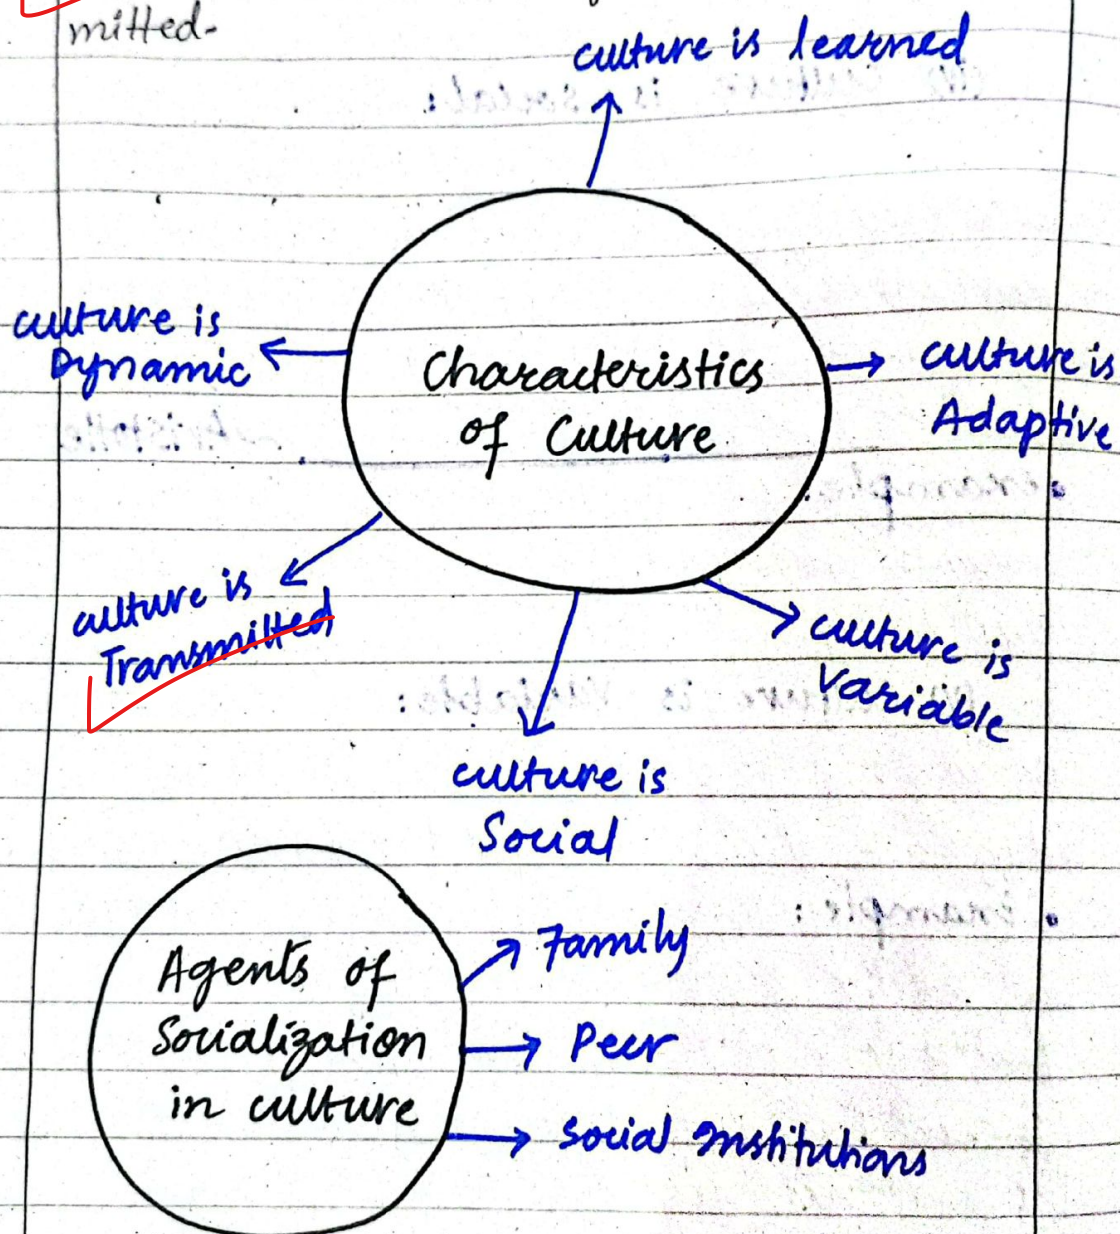 mitted-
culture is learned
culture is
Dynamic
Characteristics
of Culture
culture is
Adaptive
culture is
Transmitted
culture is
Variable
culture is
Social
Agents of
Socialization
in culture
Family
Peer
Social Institutions